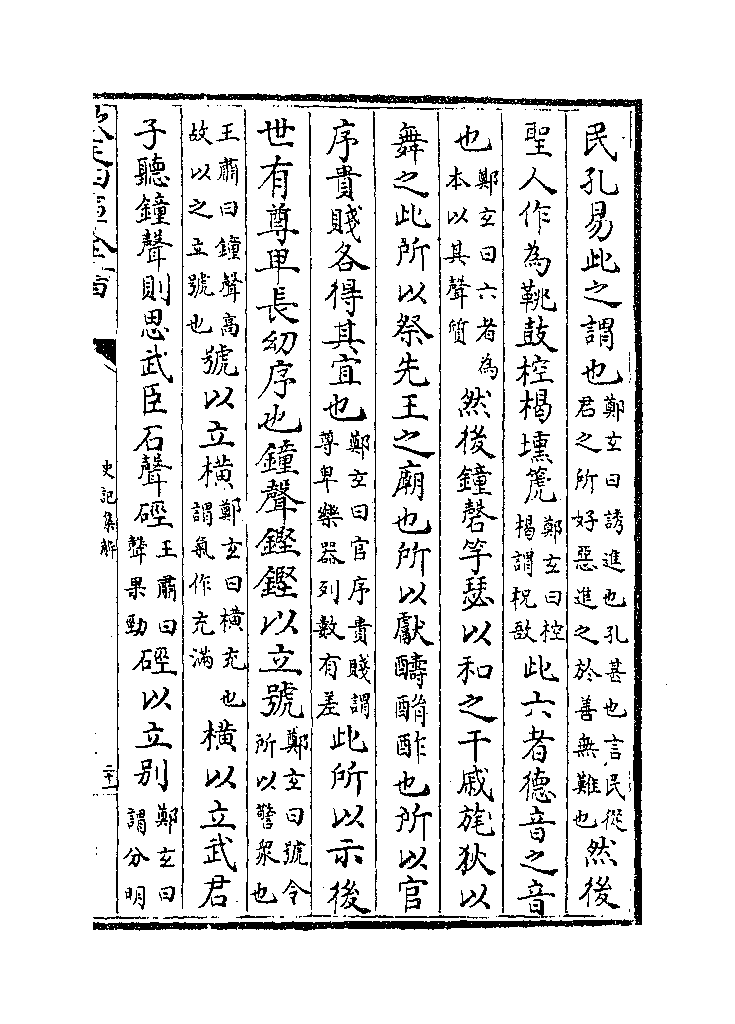 民孔易此之謂也鄭玄曰誘進也孔甚也言民從君之所好惡進之於善無難也然後
聖人作為鞉鼓椌楬壎箎鄭玄曰椌楬謂柷敔此六者德音之音
也鄭玄曰六者為本以其聲質然後鐘磬竽瑟以和之干戚旄狄以
舞之此所以祭先王之廟也所以獻醻酳酢也所以官
序貴賤各得其宜也鄭玄曰官序貴賤謂尊卑樂器列數有差此所以示後
世有尊卑長幼序也鐘聲鏗鏗以立號鄭玄曰號令所以警衆也
王肅曰鐘聲高故以之立號也號以立橫鄭玄曰橫充也謂氣作充滿橫以立武君
子聽鐘聲則思武臣石聲硜王肅曰聲果勁硜以立别鄭玄曰謂分明
史記集解
二十一